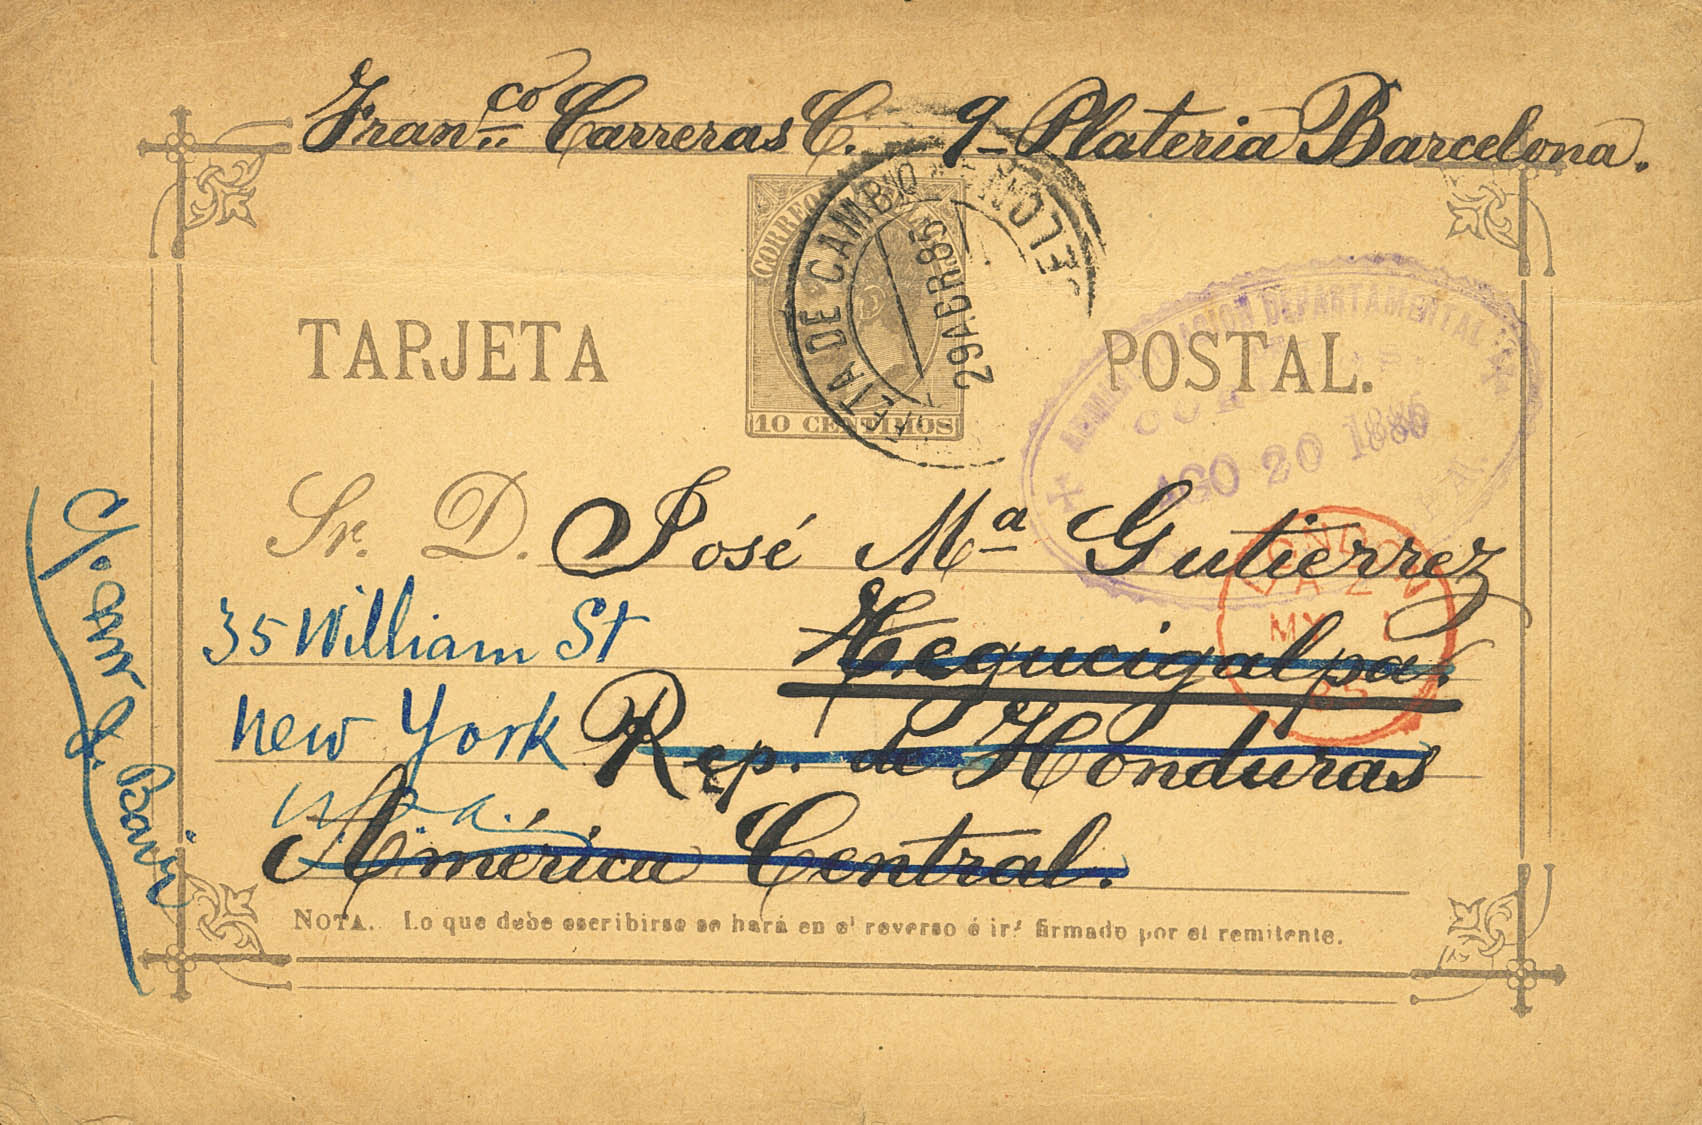 Fran.co Carreras C. 9 - Plateria Barcelona.
CORREO
DE CAMBIO
29 ABR 85
10 CENTIMOS
TARJETA POSTAL.
DEPARTAMENTAL
AGO 20 1885
Sr. D. José Mª Gutierrez
LONDON
MY 1
85
35 William St Tegucigalpa.
New York Rep. de Honduras
América Central.
NOTA. Lo que debe escribirse se hará en el reverso é irá firmado por el remitente.